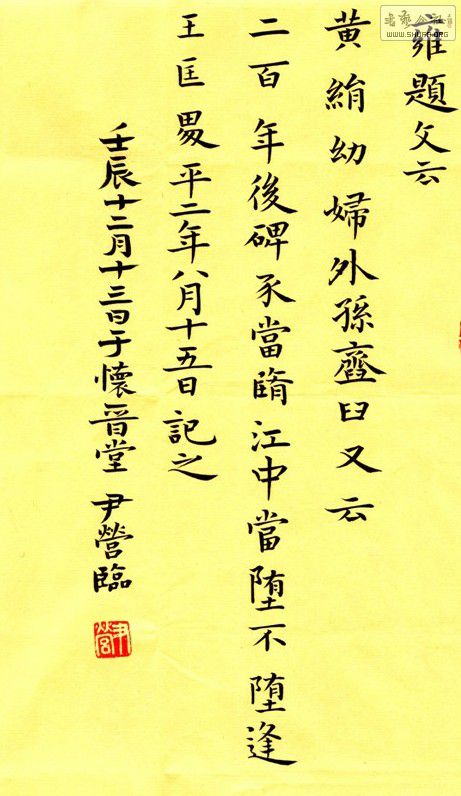 雍題文云
黃絹幼婦外孫齏臼又云
二百年後碑當江中當堕不堕逢
王匡平二年八月十五日記之
壬辰十二月十三日于懷晋堂 尹營臨
尹營
WWW.SHUFA.ORG